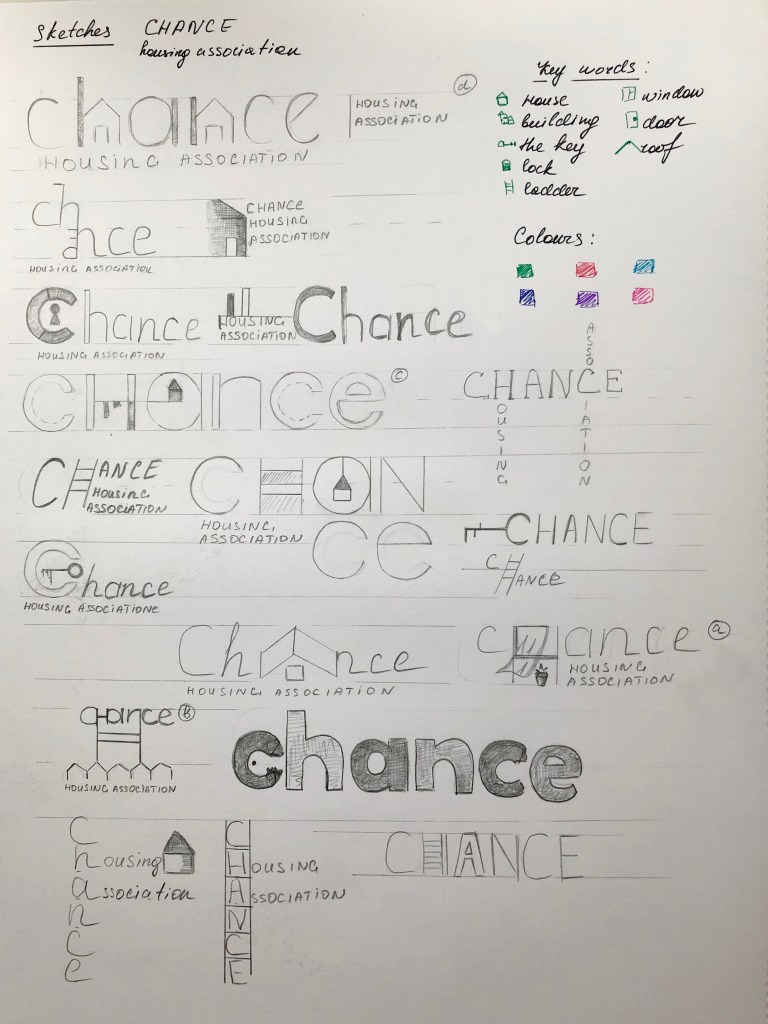 Sketches CHANCE
housing association
Key words:
House
building
the key
lock
ladder
window
door
roof
Colours:
chance
HOUSING ASSOCIATION
HOUSING
ASSOCIATION
d
chance
HOUSING ASSOCIATION
CHANCE
HOUSING
ASSOCIATION
Chance
HOUSING ASSOCIATION
HOUSING
ASSOCIATION
Chance
cHance
c
CHANCE
HOUSING
ASSOCIATION
CHANCE
HOUSING
ASSOCIATION
CHAN
ce
HOUSING
ASSOCIATION
CHANCE
CHANCE
Chance
HOUSING ASSOCIATIONE
Chance
HOUSING ASSOCIATION
CHance
HOUSING
ASSOCIATION
a
cHance
b
HOUSING ASSOCIATION
chance
Chance
housing
association
CHANCE
HOUSING
ASSOCIATION
CHANCE